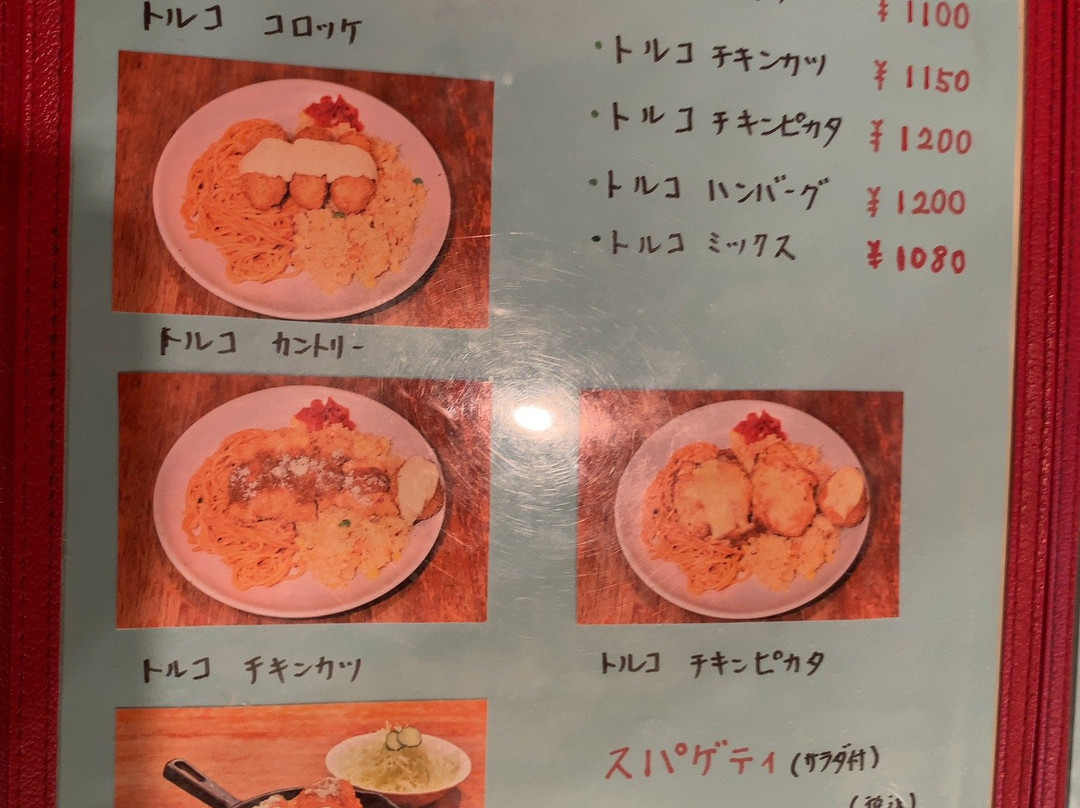 トルコ コロッケ
¥1100
・トルコ チキンカツ ¥1150
・トルコ チキンピカタ ¥1200
・トルコ ハンバーグ ¥1200
・トルコ ミックス ¥1080
トルコ カントリー
トルコ チキンカツ
トルコ チキンピカタ
スパゲティ (サラダ付)